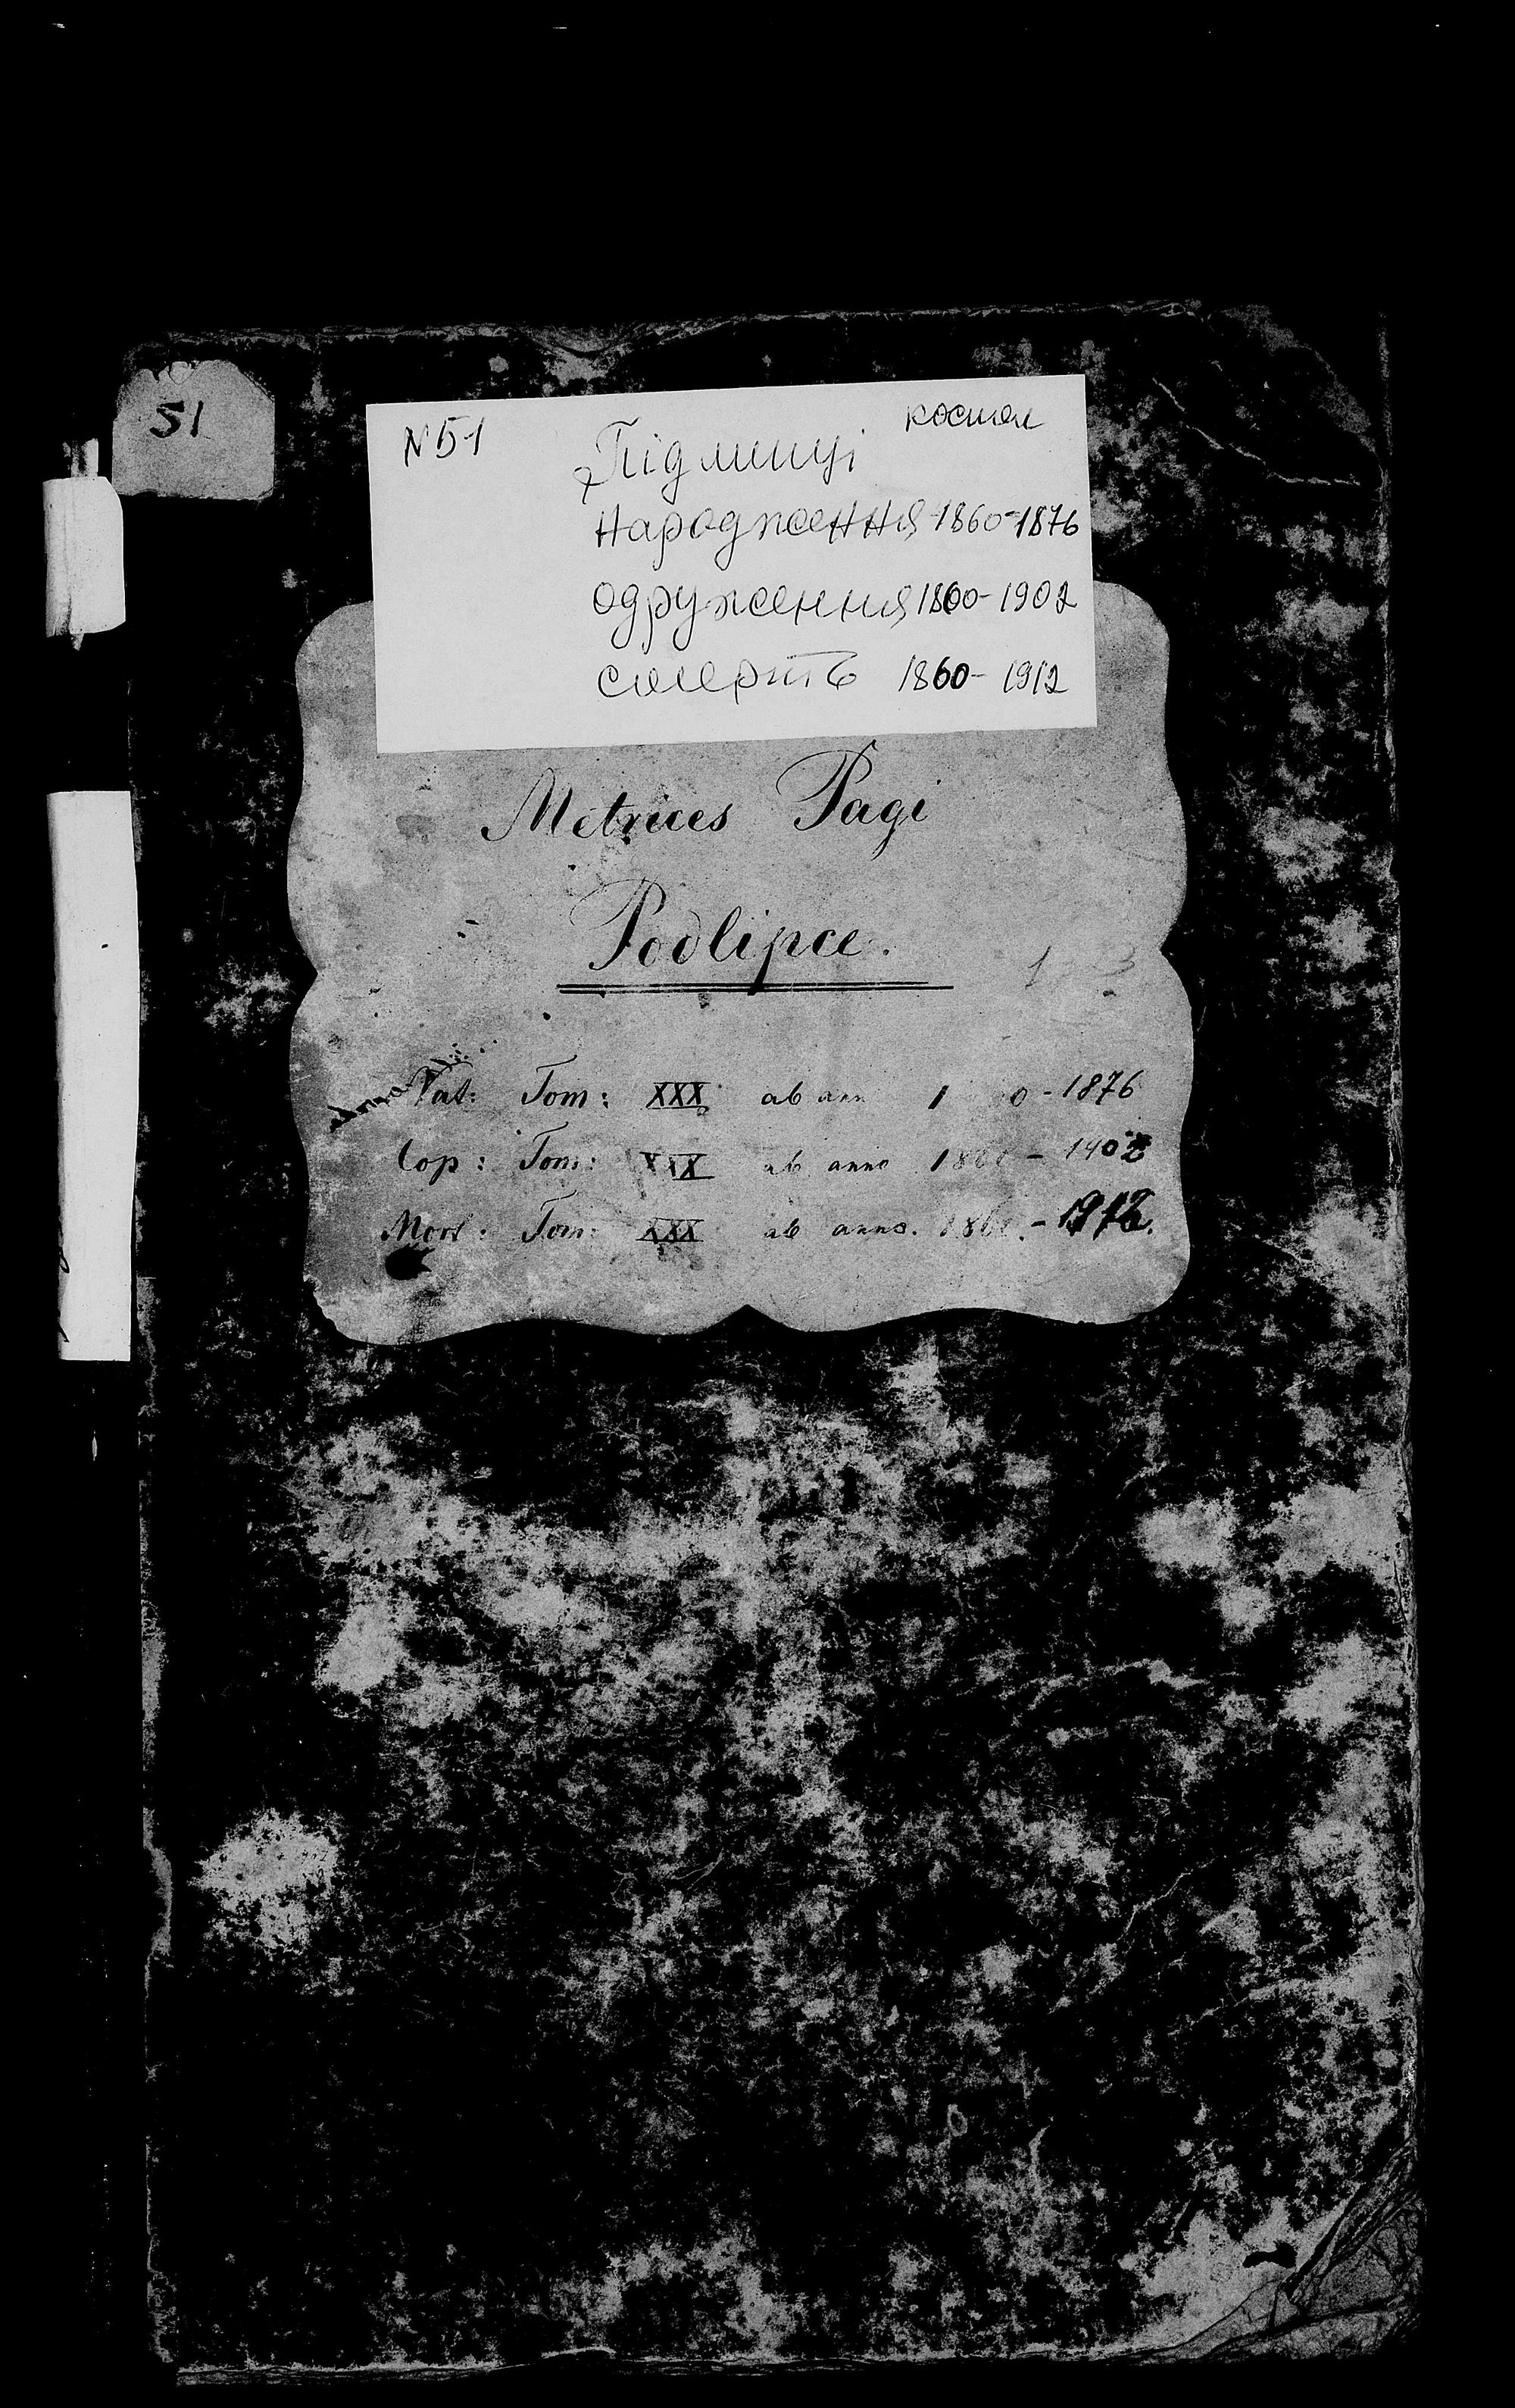 51
N 51
костел
Підлипці
народження 1860-1876
одруження 1860-1902
смерть 1860-1912
Metrices Pagi
Podlipce.
Nat: Tom: XXX ab ann 1 0 - 1876
Cop: Tom: XXX ab anno 1860 - 1902
Mort: Tom: XXX ab anno. 1860. - 1912.